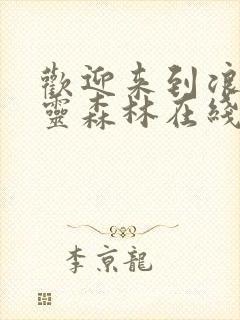 歡迎来到浪
靈森林在綫
李京龍